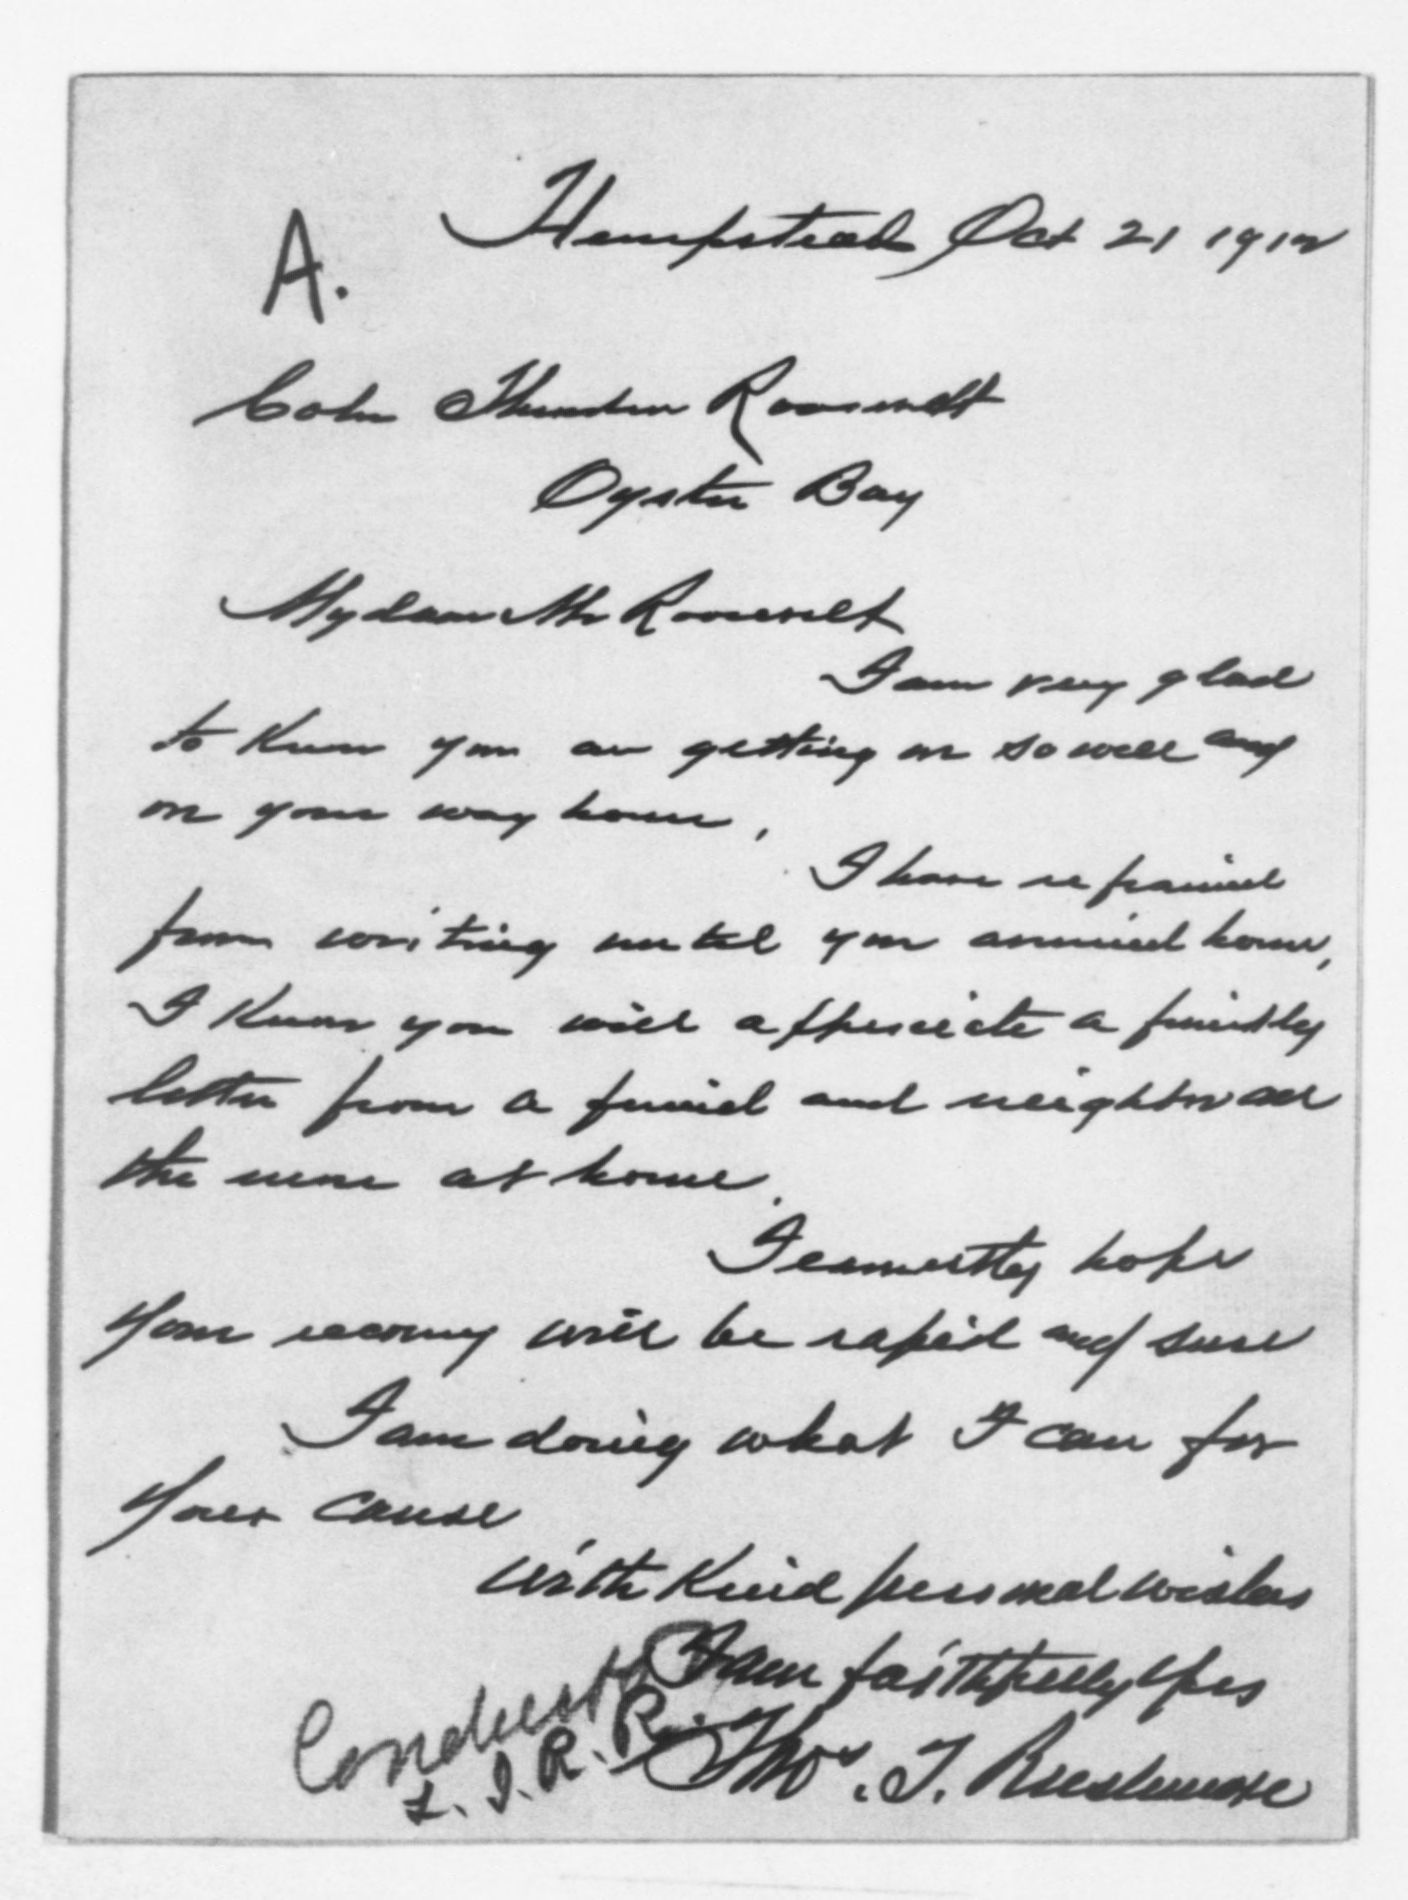 A.
Hempstead Oct 21 1912
Coln Theodore Roosevelt
Oyster Bay
My dear Mr Roosevelt
I am very glad
to know you are getting on so well and
on your way home,
I have refrained
from writing until you arrived home,
I know you will appreciate a friendly
letter from a friend and neighbor all
the more at home.
I earnestly hope
your recovery will be rapid and sure
I am doing what I can for
your cause
with kind personal wishes
I am faithfully yrs
Thos. T.
Conductor
L. I. R. R.